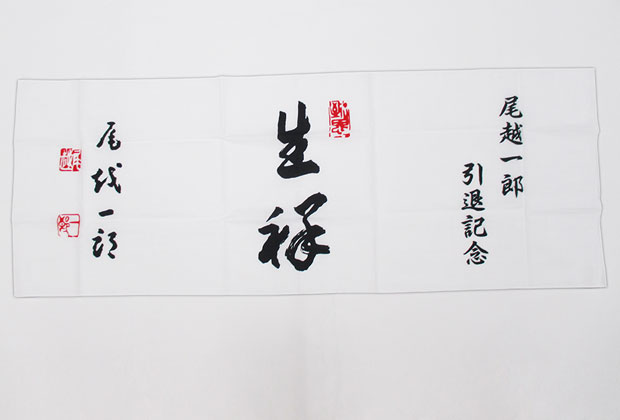 尾越一郎
引退記念
生祥
尾越一郎